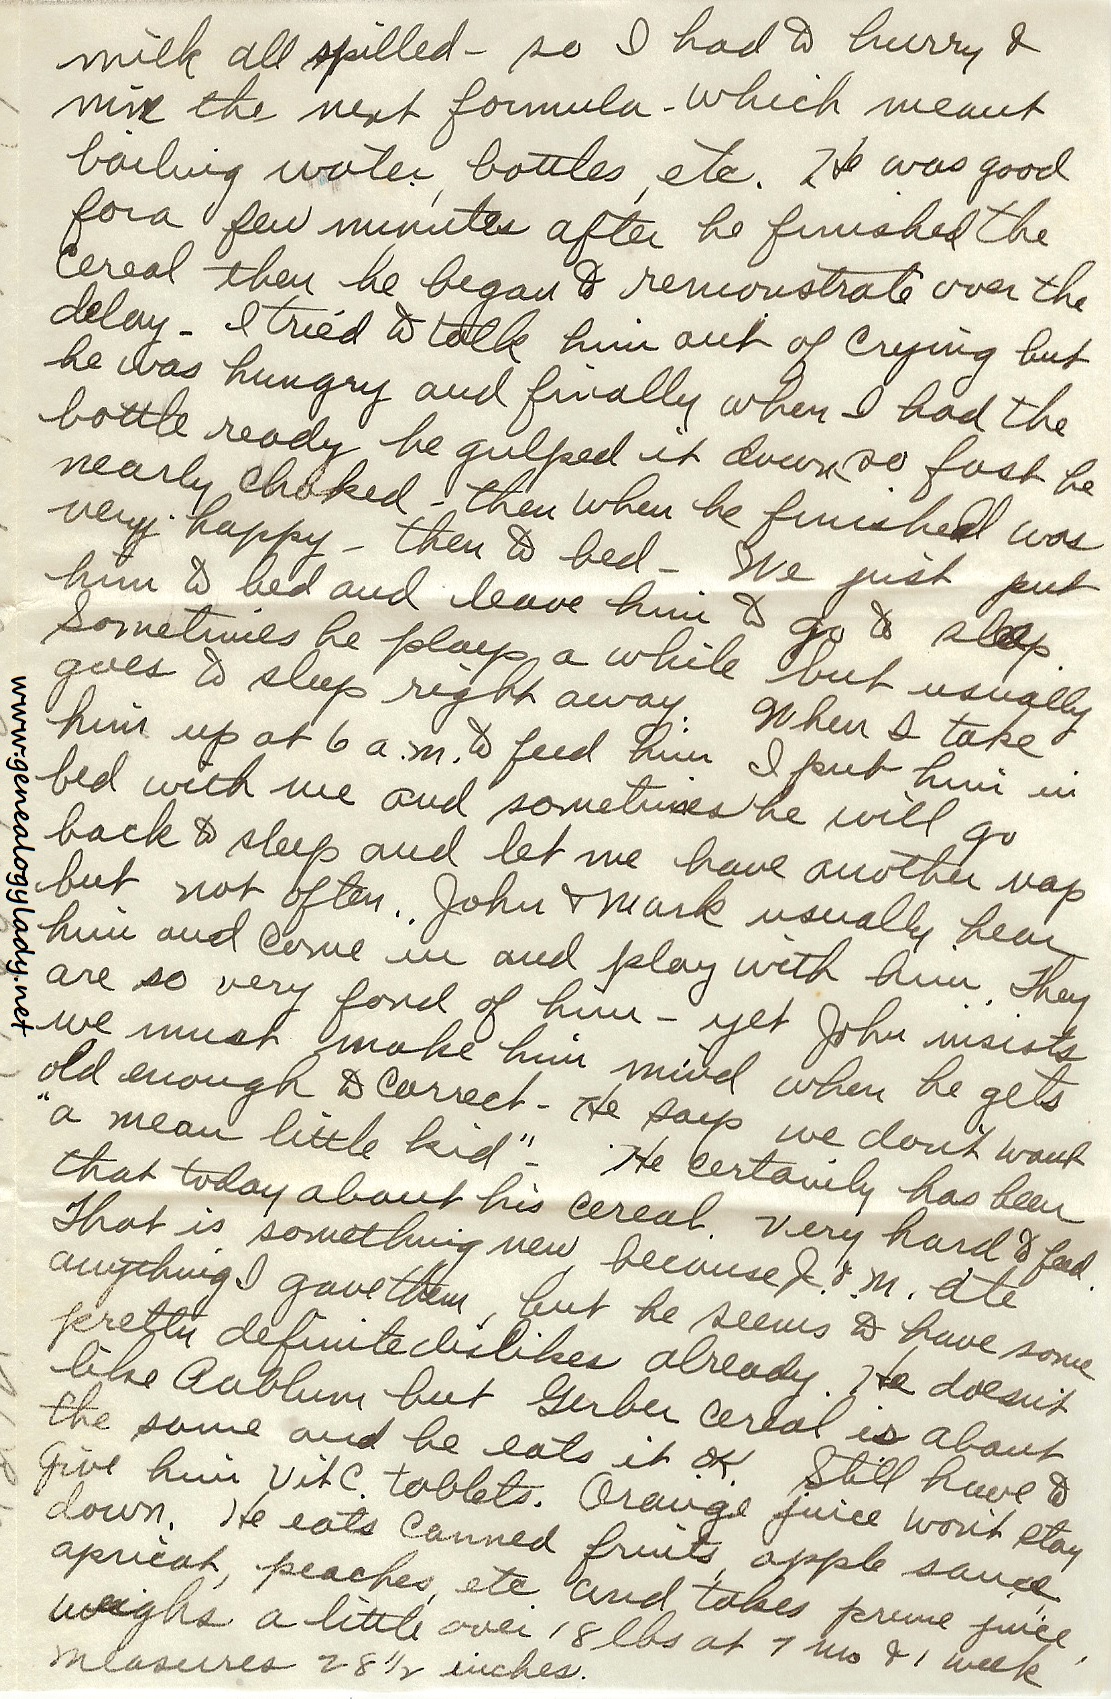 milk all spilled - so I had to hurry &
mix the next formula - which meant
boiling water, bottles, etc. He was good
for a few minutes after he finished the
cereal then he began to remonstrate over the
delay - I tried to talk him out of crying but
he was hungry and finally when I had the
bottle ready he gulped it down so fast he
nearly choked - then when he finished was
very happy - then to bed - We just put
him to bed and leave him to go to sleep.
Sometimes he plays a while but usually
goes to sleep right away. When I take
him up at 6 a.m. to feed him I put him in
bed with me and sometimes he will go
back to sleep and let me have another nap
but not often.. John & Mark usually hear
him and come in and play with him. They
are so very fond of him - yet John insists
we must make him mind when he gets
old enough to correct - He says we don't want
"a mean little kid" - He certainly has been
that today about his cereal. Very hard to feed.
That is something new, because J. & M. ate
anything I gave them, but he seems to have some
pretty definite dislikes already. He doesn't
like Pablum but Gerber cereal is about
the same and he eats it OK. Still have to
give him Vit C. tablets. Orange juice won't stay
down. He eats canned fruits, apple sauce,
apricot, peaches, etc and takes prune juice,
weighs a little over 18 lbs at 7 mo & 1 week
measures 28 1/2 inches.
www.genealogylady.net